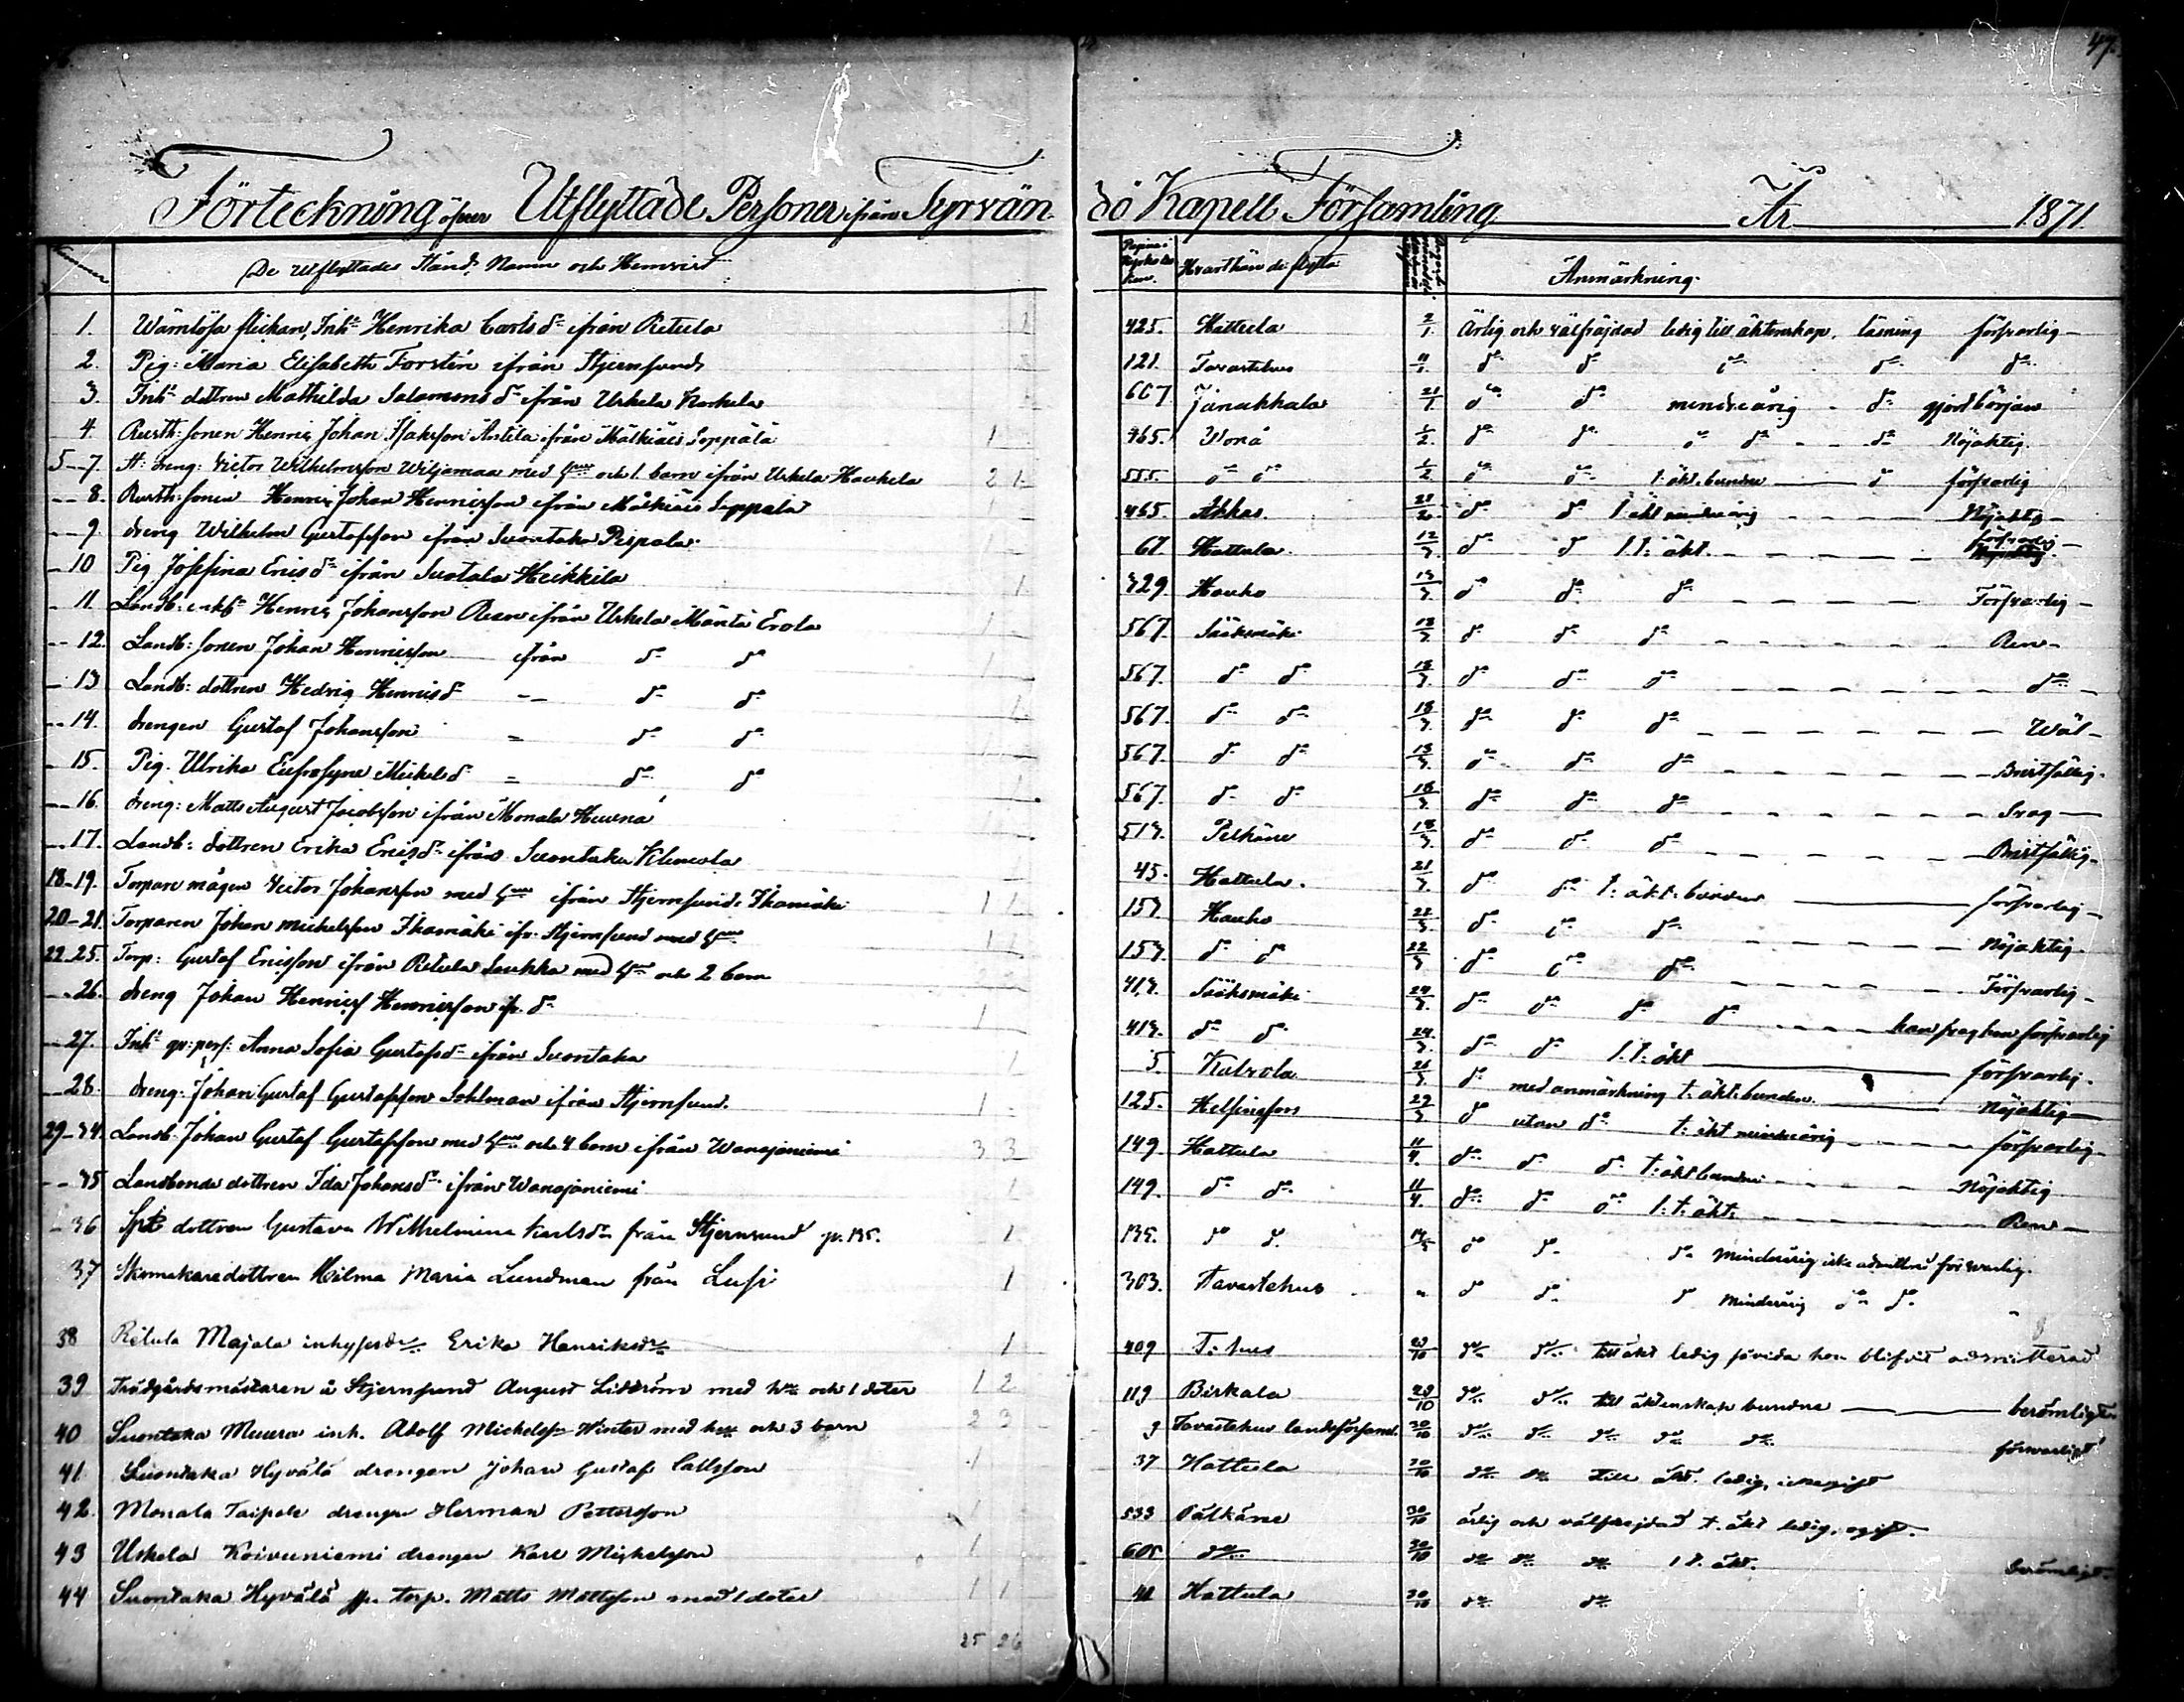 47.
Förteckning öfver Utflyttade Personer ifrån Tyrvändö Kapell Församling År 1871.
De Utflyttades Stånd, Namn och Hemvist Hvarthän de flytta Anmärkning.
1. Wärnlösa flickan, Inhs Henrika Carlsdr ifrån Retula 1 425. Hattula 2/1. Ärlig och välfräjdad ledig till äktenskap, läsning försvarlig
2. Pig: Maria Elisabeth Forstén ifrån Stjernsund 121. Tavastehus 11/1. do do do do do
3. Inhs dottren Mathilda Salomonsdr ifrån Uskela 667 Janakkala 21/1. do do minderårig do gjord början
4. Rusth: sonen Henric Johan Isaksson Antila ifrån Mälkiäis Seppälä 1 465. 1/2. do do do do do Nöjaktig.
5-7. Victor Wilhelmsson Wiljamaa med hustru och 1. barn ifrån Uskela 2 1. 555. do do 1/2 do do t: äkt. bunden försvarlig
8. Rusth: sonen Henric Johan Henricsson ifrån Mälkiäis Seppälä 1 465. Akkas do do t: äkt minderårig Nöjaktig
9. dreng Wilhelm Gustafsson ifrån Suontaka Pispala 67. Hattula 12/3. do do l. t: äkt. försvarlig
10 Pig Josefina Ericsdr ifrån Suotala Heikkilä 1. 329. Hauho 13/3. do do do Försvarlig
11. Henric Johansson ifrån Uskela Mäntä Erola 1 567. Sääksmäki 13/3. do do do Ren
12. Landb: sonen Johan Henricsson ifrån do do 1 567. do do 13/3. do do do do
13 Landb: dottren Hedvig Henricsdr do do 1. 567. do do 13/3. do do do Wäl
14. drengen Gustaf Johansson do do 1 567. do do 13/3. do do do Bristfällig.
15. Pig. Ulrika Eufrosyne Mickelsdr do do 1 567. do do 13/3. do do do Svag
16. dreng: Matts August Jacobsson ifrån Monala 513. Pelkäne 13/3. do do do Bristfällig
17. Landb: dottren Erika Ericsdr ifrån Suontaka Klemola 45. Hattula. 21/3. do do t: äkt: bunden försvarlig
18-19. Torpare mågen Victor Johansson med hustru ifrån Stjernsund. Ihamäki 1 1. 153 Hauho do do do Nöjaktig.
20-21. Torparen Johan Mickelsson Ihamäki ifr. Stjernsund med hustru 1 1 153. do do 22/3 do do do Försvarlig
22-25. Torp: Gustaf Ericsson ifrån Retula med hustru och 2 barn 413. Sääksmäki 24/3. do do do do han svag hon försvarlig
26. dreng Johan Henric Henricsson ifr. do 1 413. do do 24/3. do do l. t: äkt försvarlig.
27. Anna Sofia Gustafsdr ifrån Suontaka 1 5 Kalvola do med anmärkning t: äkt: bunden. Nöjaktig
28. dreng: Johan Gustaf Gustafsson Sohlman ifrån Stjernsund. 1 125. Helsingfors do utan do t: äkt minderårig försvarlig
29-34. Landb: Johan Gustaf Gustafsson med hustru och 4 barn ifrån Wanajaniemi 3 3 149. Hattula 11/4. do do do t: äkt bunden Nöjaktig
35 Landbonde dottren Ida Johansdr ifrån Wanajaniemi 1 149. do do 11/4. do do do l: t: äkt: Ren
36 dottren Gustava Wilhelmina Karlsdr från Stjernsund p. 135. 1 135. do do do do do Minderårig icke admitterad försvarlig.
37 Skomakaredottren Hilma Maria Lundman från Lusi 1 303. Tavastehus " do do do Minderårig do do
38 Retula Majala inhysesdr Erika Henriksdr 1 409 T:hus do do till äkt ledig hon blifvit admitterad
39 Trädgårdsmästaren å Stjernsund August Lidström med hu och 1 doter 1 2 119 Birkala do do till äktenskap bundna berömligt
40 Suontaka inh. Adolf Michelsson Winter med hu och 3 barn 2 3 9 Tavastehus landsförsaml. 30/10 do do do do do försvarligt
41 Suontaka Hyvälä drengen Johan Gustaf Carlsson 1 37 Hattula 30/10 do do till äkt. ledig,
42. Monala Taipale drengen Herman Pettersson 1 533 Pälkäne 30/10 ärlig och välfrejdad t. äkt ledig, ogift.
43 Uskela Koivuniemi drengen Karl Michelsson 1 605 do 30/10 do do do l t. äkt. berömligt
44 Suontaka Hyvälä torp. Matts Mattsson med 1 doter 1 1 41 Hattula 30/10 do do
25 26